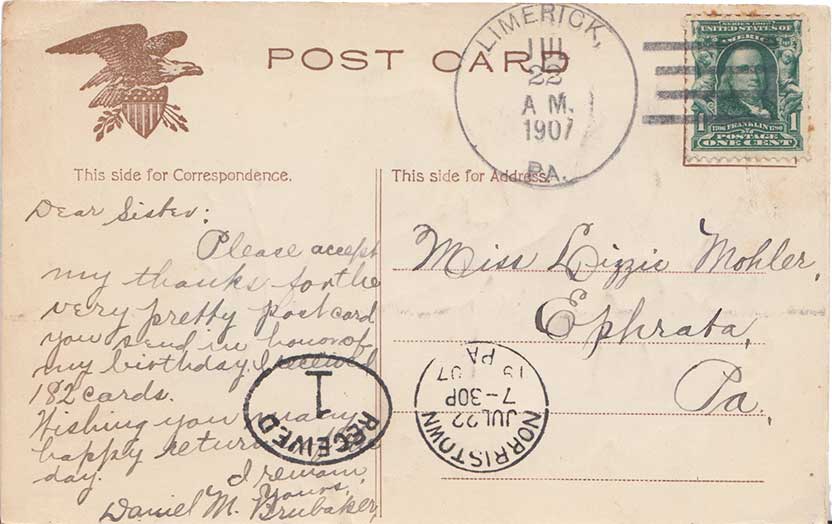 POST CARD
LIMERICK,
JUL
22
A M.
1907
PA.
SERIES 1902
UNITED STATES OF
AMERICA
1706 FRANKLIN 1790
1 POSTAGE 1
ONE CENT
This side for Correspondence.
Dear Sister:
Please accept
my thanks for the
very pretty post card
you send in honor of
my birthday. I received
182 cards.
Wishing you many
happy return
day.
I remain
Yours,
Daniel M. Brubaker,
This side for Address.
Miss Lizzie Mohler,
Ephrata,
Pa.,
RECEIVED
1
NORRISTOWN
JUL 22
7-30P
19 07
PA